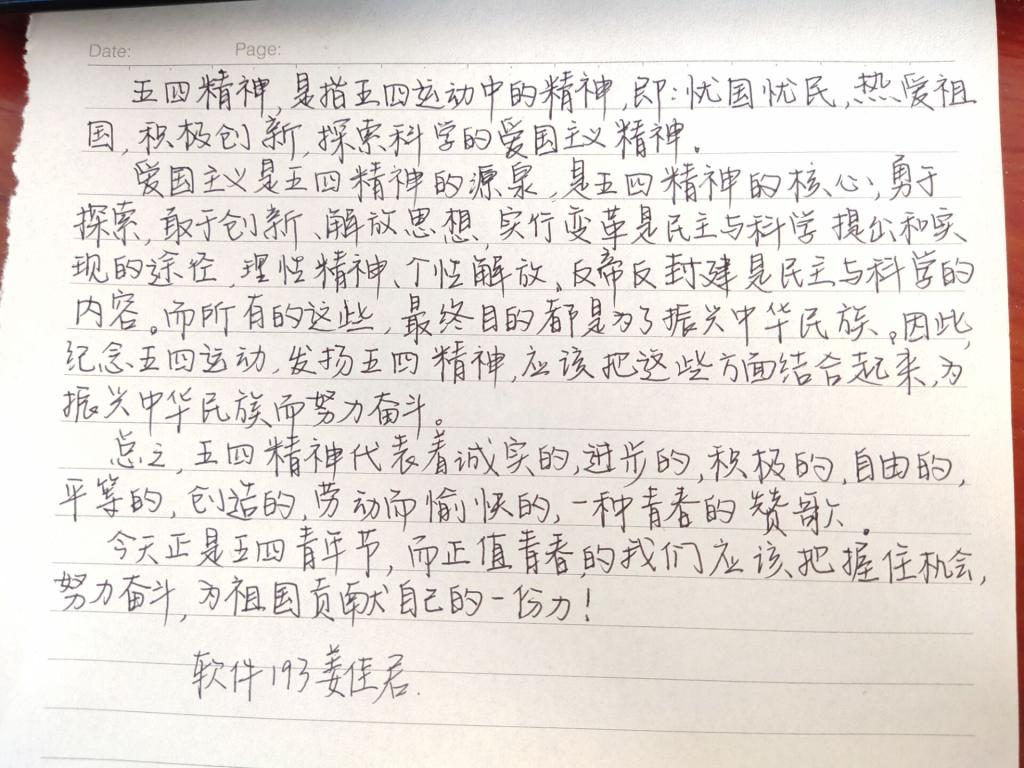 Date: Page:
五四精神,是指五四运动中的精神,即:忧国忧民,热爱祖
国,积极创新,探索科学的爱国主义精神。
爱国主义是五四精神的源泉,是五四精神的核心,勇于
探索,敢于创新、解放思想,实行变革是民主与科学提出和实
现的途径,理性精神、个性解放、反帝反封建是民主与科学的
内容。而所有的这些,最终目的都是为了振兴中华民族。因此,
纪念五四运动,发扬五四精神,应该把这些方面结合起来,为
振兴中华民族而努力奋斗。
总之,五四精神代表着诚实的,进步的,积极的,自由的,
平等的,创造的,劳动而愉快的,一种青春的赞歌。
今天正是五四青年节,而正值青春的我们应该把握住机会,
努力奋斗,为祖国贡献自己的一份力!
软件193姜佳君.